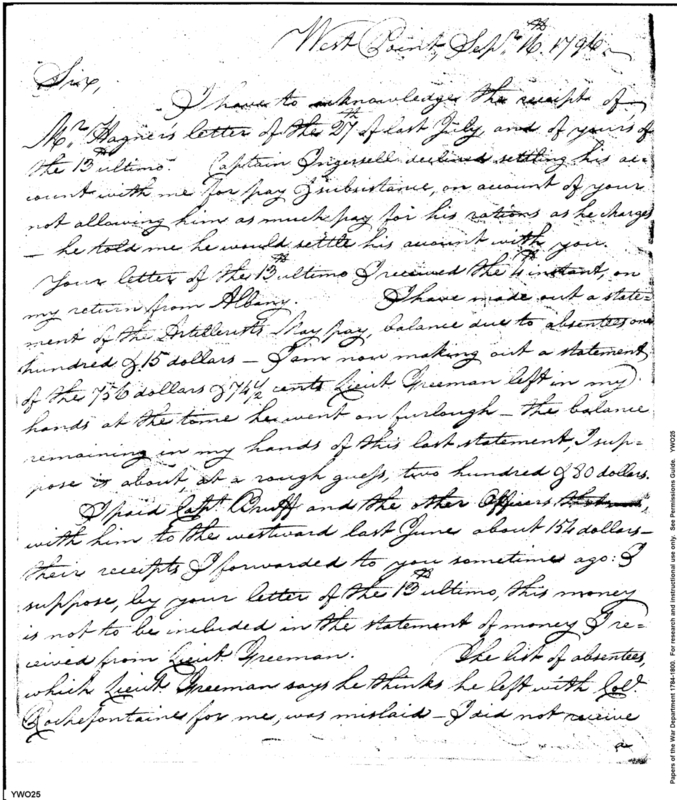 West Point, Sepr. 16th 1796.
Sir,
I have to acknowledge the receipt of
Mr. Hagner's letter of the 27th of last July and of yours of
the 13th ultimo. Captain Ingersell declined settling his ac-
count with me for pay & subsistance, on account of your
not allowing him as much pay for his rations as he charges
— he told me he would settle his account with you.
Your letter of the 13th ultimo I received the 4th instant, on
my return from Albany. I have made out a state-
ment of the Artillerists May pay, balance due to absentees one
hundred & 15 dollars — I am now making out a statement
of the 756 dollars & 74 1/2 cents Lieut Freeman left in my
hands at the tome he went on furlough — the balance
remaining in my hands of this last statement, I sup-
pose is about, at a rough guess, two hundred & 80 dollars.
I paid Capt. Bruff and the other Officers
with him to the westward last June about 154 dollars —
their receipts I forwarded to you sometimes ago: I
suppose, by your letter of the 13th ultimo, this money
is not to be included in the statement of money I re-
ceived from Lieut Freeman. The list of absentees,
which Lieut Freeman says he thinks he left with Col.
Rochefontaine for me, was mislaid — I did not receive
a
Papers of the War Department 1784-1800. For research and instructional use only. See Permissions Guide. YWO25
YWO25